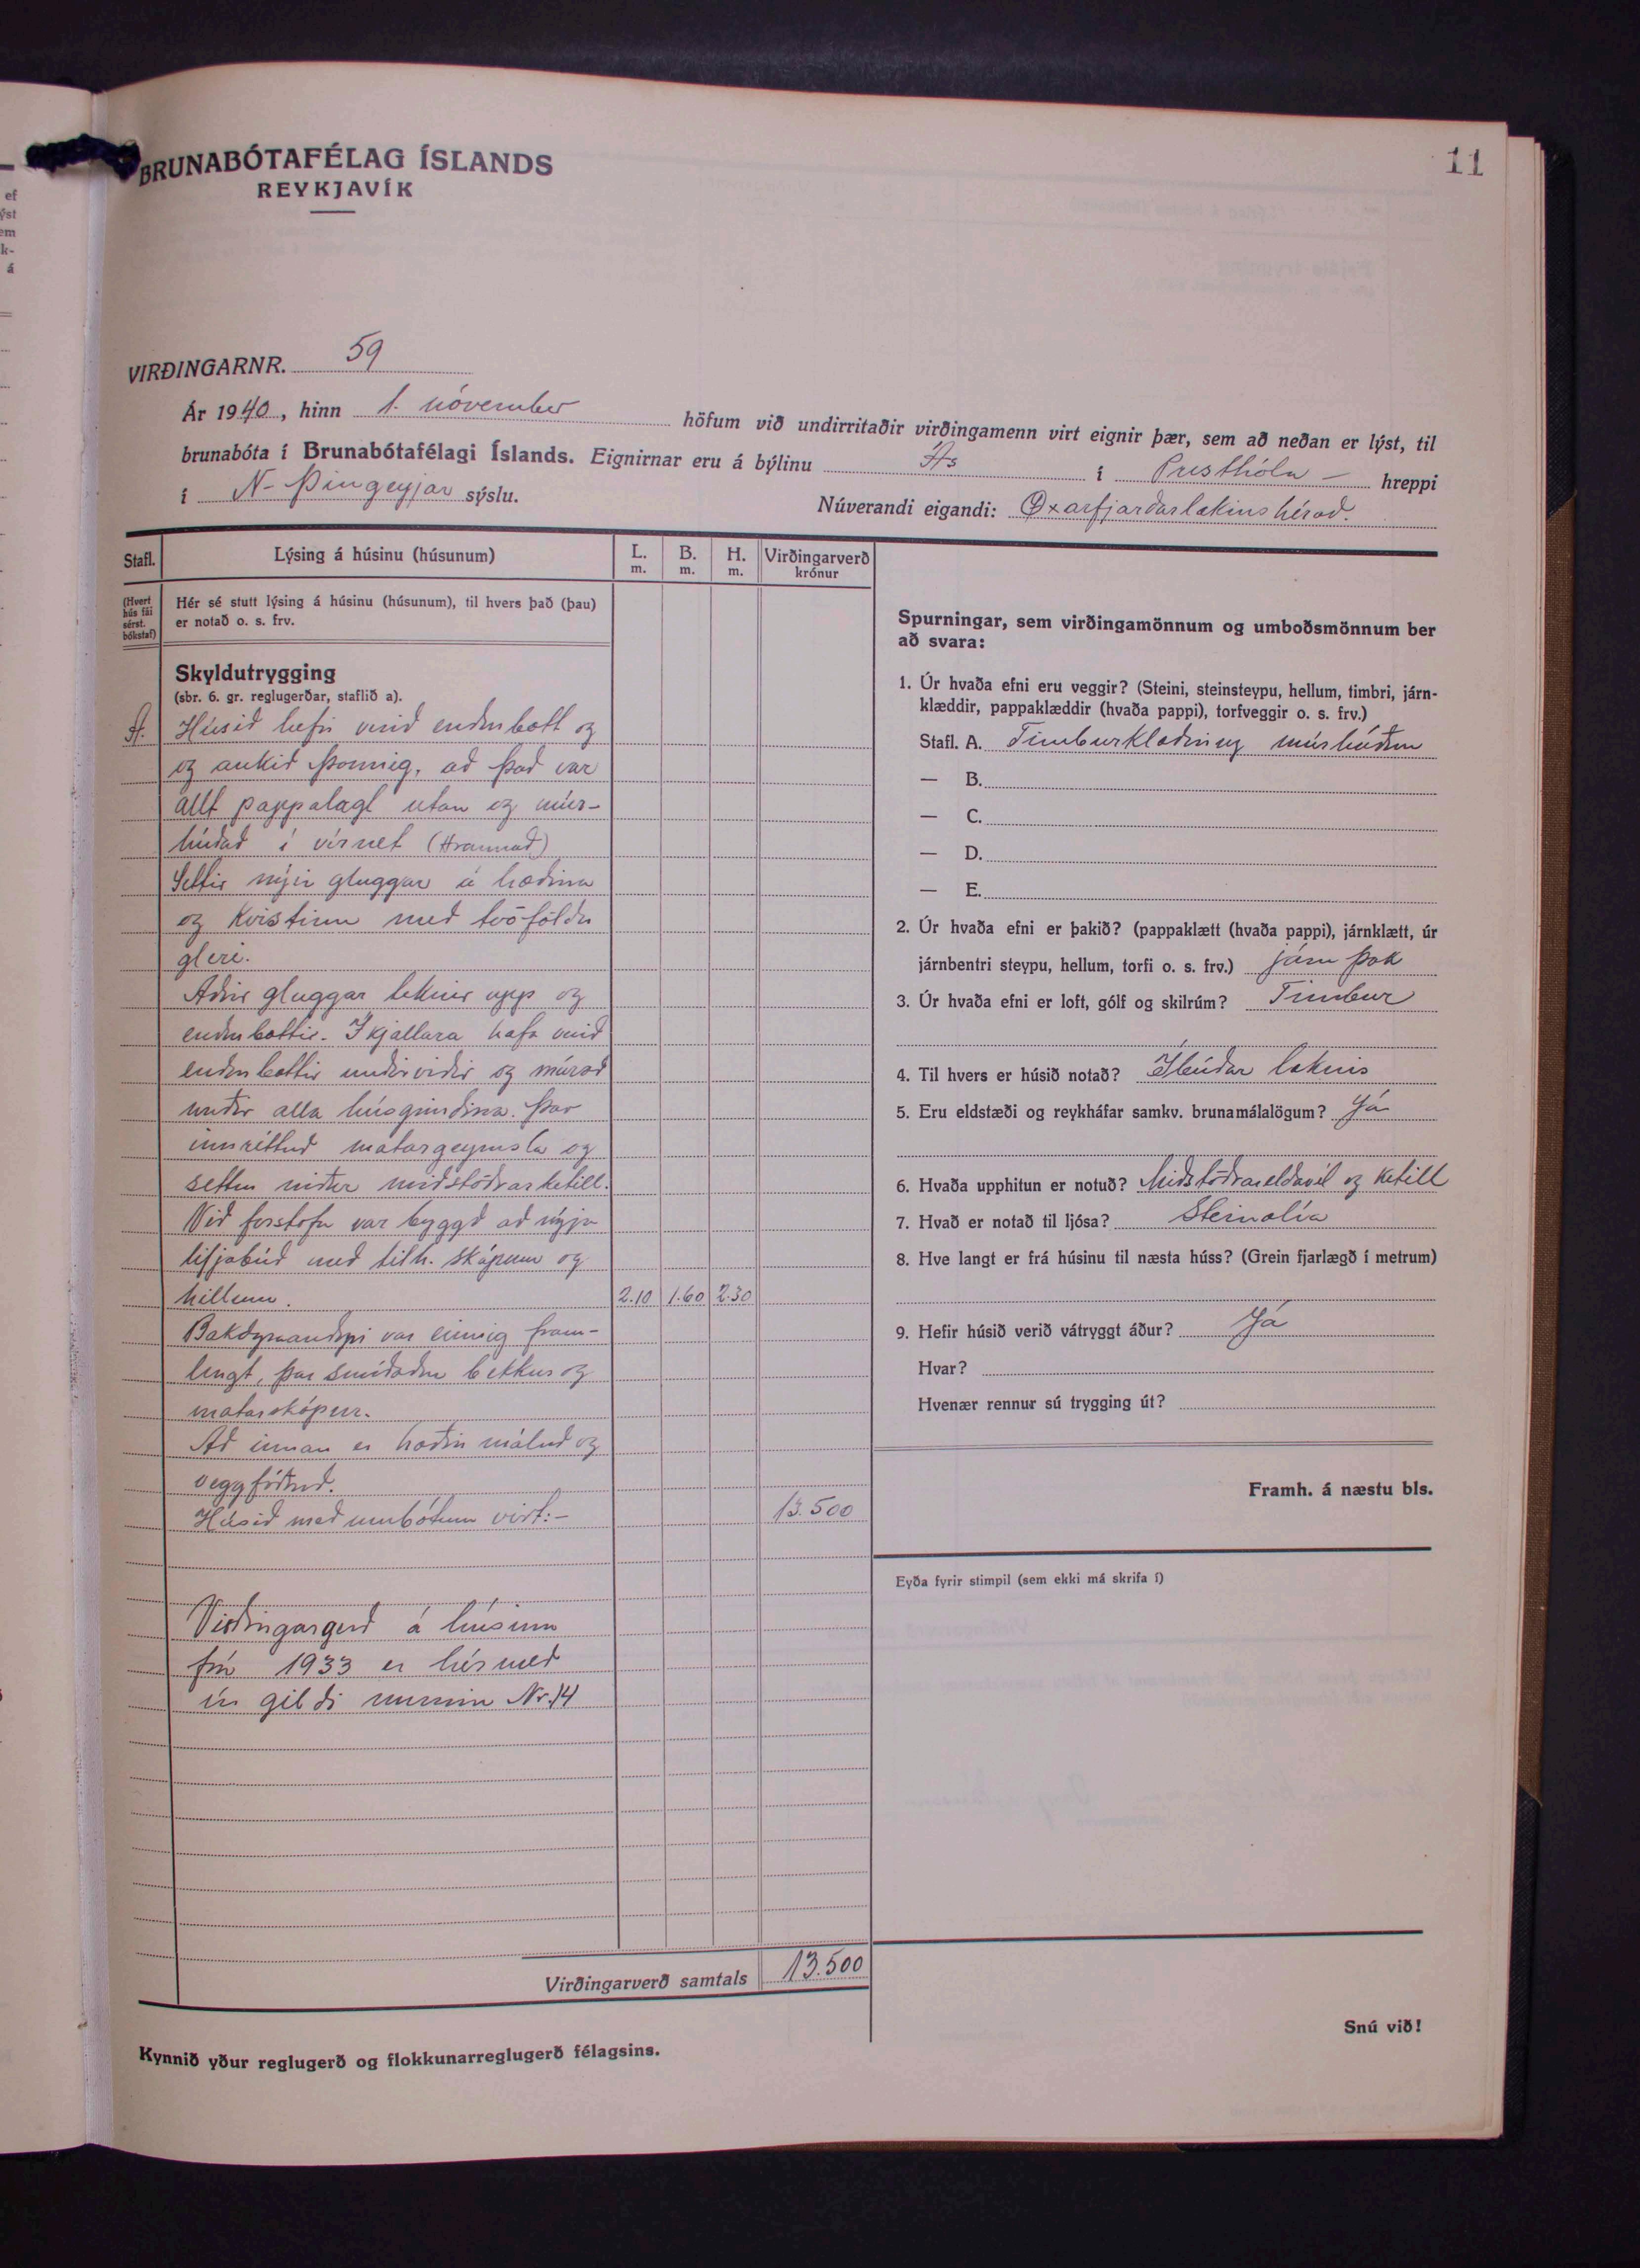 11
BRUNABÓTAFÉLAG ÍSLANDS
REYKJAVÍK
VIRÐINGARNR. 59
Ár 1940, hinn 1. nóvember höfum við undirritaðir virðingamenn virt eignir þær, sem að neðan er lýst, til
brunabóta í Brunabótafélagi Íslands. Eignirnar eru á býlinu Ás í Presthóla - hreppi
í N- Þingeyjar sýslu.
Núverandi eigandi: Öxarfjarðarlæknishérað.
Stafl.
Lýsing á húsinu (húsunum)
L. m.
B. m.
H. m.
Virðingarverð krónur
(Hvert hús fái sérst. bókstaf)
Hér sé stutt lýsing á húsinu (húsunum), til hvers það (þau)
er notað o. s. frv.
Skyldutrygging
(sbr. 6. gr. reglugerðar, staflið a).
A. Húsið hefir verið endurbætt og
og aukið þannig, að það var
allt pappalagt utan og múr-
húðað í vírnet (Hraunað)
Settir nýir gluggar á hæðina
og Kvistinn með tvöföldu
gleri.
Aðrir gluggar teknir upp og
endurbættir. Í kjallara hafa verið
endurbættir undirviðir og múrað
undir alla húsgrindina. Þar
innréttuð matargeymsla og
settur niður miðstöðvarketill.
Við forstofu var byggð að nýju
lifjabúð með tilh. skápum og
hillum. 2.10 1.60 2.30
Bakdyraandyri var einnig fram-
lengt, þar smíðaður bekkur og
matarskápur.
Að innan er hæðin máluð og
veggfóðruð.
Húsið með umbótum virt:- 13.500
Virðingargerð á húsinu
frá 1933 er hér með
úr gildi numin Nr. 14
Virðingarverð samtals 13.500
Kynnið yður reglugerð og flokkunarreglugerð félagsins.
Spurningar, sem virðingamönnum og umboðsmönnum ber
að svara:
1. Úr hvaða efni eru veggir? (Steini, steinsteypu, hellum, timbri, járn-
klæddir, pappaklæddir (hvaða pappi), torfveggir o. s. frv.)
Stafl. A. Timburklæðning múrhúðun
— B.
— C.
— D.
— E.
2. Úr hvaða efni er þakið? (pappaklætt (hvaða pappi), járnklætt, úr
járnbentri steypu, hellum, torfi o. s. frv.) járn þak
3. Úr hvaða efni er loft, gólf og skilrúm? Timbur
4. Til hvers er húsið notað? Íbúðar læknis
5. Eru eldstæði og reykháfar samkv. brunamálalögum? Já
6. Hvaða upphitun er notuð? Miðstöðvareldavél og ketill
7. Hvað er notað til ljósa? Steinolía
8. Hve langt er frá húsinu til næsta húss? (Grein fjarlægð í metrum)
9. Hefir húsið verið vátryggt áður? Já
Hvar?
Hvenær rennur sú trygging út?
Framh. á næstu bls.
Eyða fyrir stimpil (sem ekki má skrifa í)
Snú við!